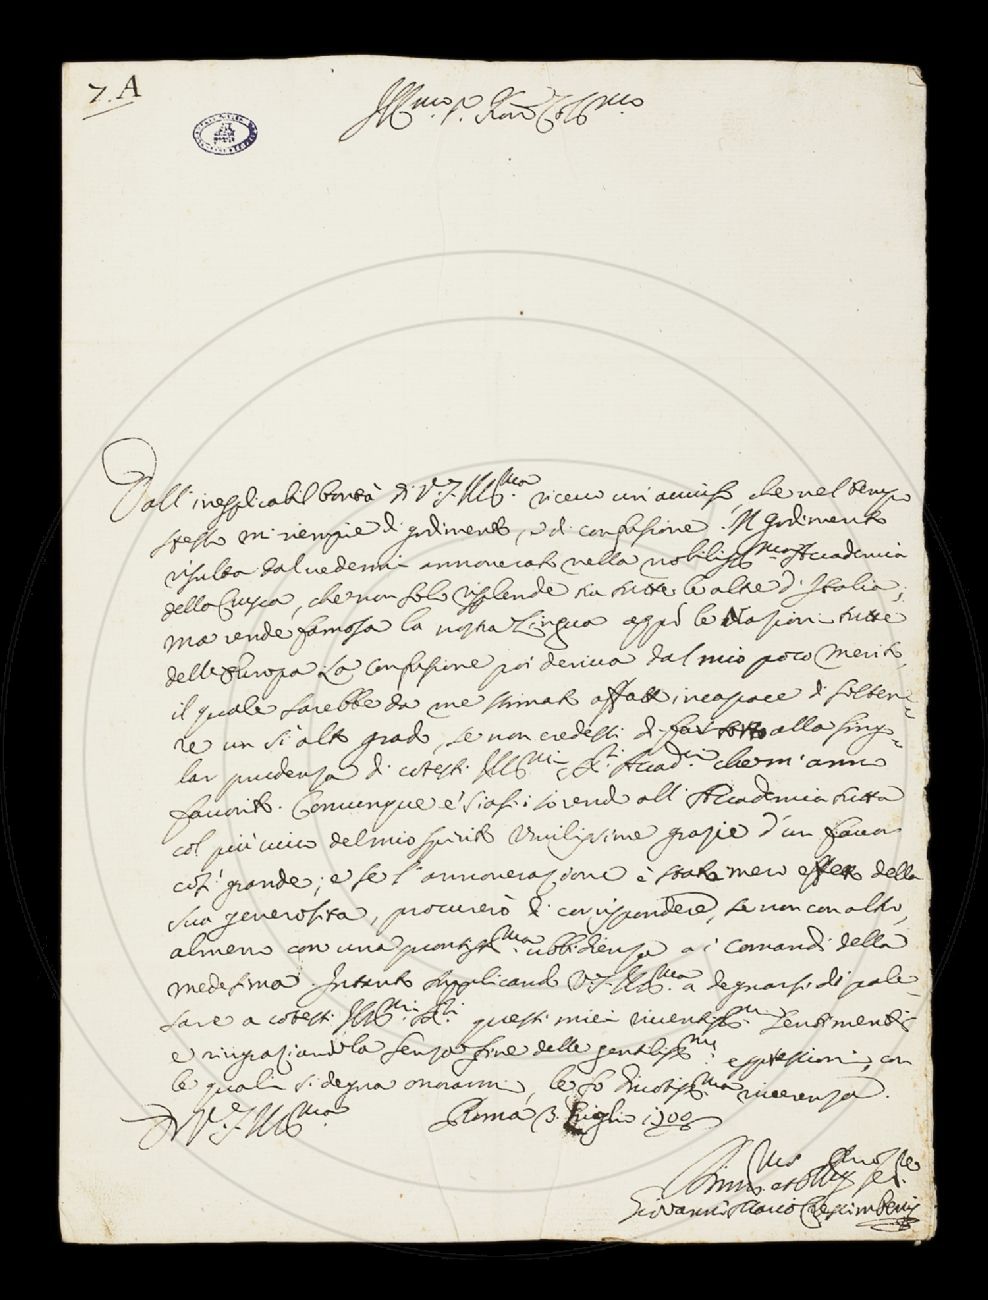 7. A
Ill.mo S.r e Pron Col.mo
Dall'inesplicabil bontà di V. S. Ill.ma ricevo un avviso, che nel tempo
stesso mi riempie di godimento, e di confusione. Il godimento
risulta dal vedermi annoverato nella nobiliss.ma Accademia
della Crusca, che non solo risplende tra tutte le altre d'Italia;
ma rende famosa la nostra Lingua appò le Nazioni tutte
dell'Europa. La confusione poi deriva dal mio poco merito,
il quale sarebbe da me stimato affatto incapace di sosten-
re un sì alto grado, se non credessi di far torto alla singo-
lar prudenza di cotesti Ill.mi SS.ri Accad.ci che m'anno
favorito. Comunque e' siasi io rendo all'Accademia tutta
col più vivo del mio spirito umilissime grazie d'un favor
così grande; e se l'annoverazione è stata mero effetto della
sua generosità, procurerò di corrispondere, se non con altro,
almeno con una prontiss.ma ubbidienza a i comandi della
medesima. Intanto supplicando V. S. Ill.ma a degnarsi di pale-
sare a cotesti Ill.mi SS.ri questi miei riverentiss.mi sentimenti
e ringraziandola senza fine delle gentiliss.me espressioni, con
le quali si degna onorarmi, le fo divotiss.ma riverenza.
D V. S. Ill.ma Roma 3. Luglio 1706
Giovanni Mario Crescimbeni